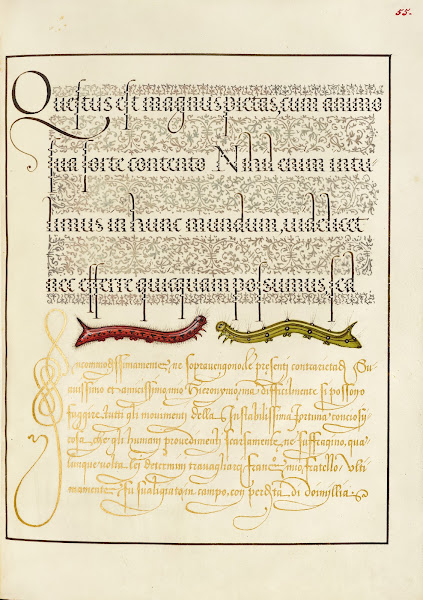 55.
Questus est magnus pietas, cum animo
sua sorte contento Nihil enim intu
limus in hunc mundum, videlicet
nec efferre quicquam possumus, sed
Incommodissimamente, ne sopravengono, le presenti contrarietadi Su
avissimo et amicissimo mio Hieronymo, ma difficilmente si possono
fuggire, tutti gli movimenti della Instabilissima Fortuna concio sij
cosa, che gli humani provedimenti scarsamente ne suffragino, qua
lunque volta lei determini travagliarci, mio fratello Ulti
mamente Fu svaligiata in campo, con perdita di